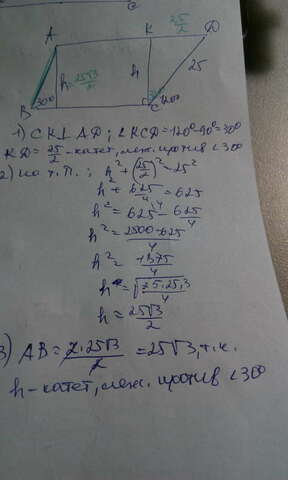 25/2
A K D
h = 25√3/2 h 25
B 30° 30° C 120°
1) CK ⊥ AD; ∠KCD = 120° - 90° = 30°
KD = 25/2 - катет, леж. против ∠30°
2) по т.П.: h² + (25/2)² = 25²
h² + 625/4 = 625
h² = 625 - 625/4
h² = 2500-625/4
h² = 1875/4
h = √25·25·3/4
h = 25√3/2
3) AB = 2·25√3/2 = 25√3, т.к.
h - катет, леж. против ∠30°